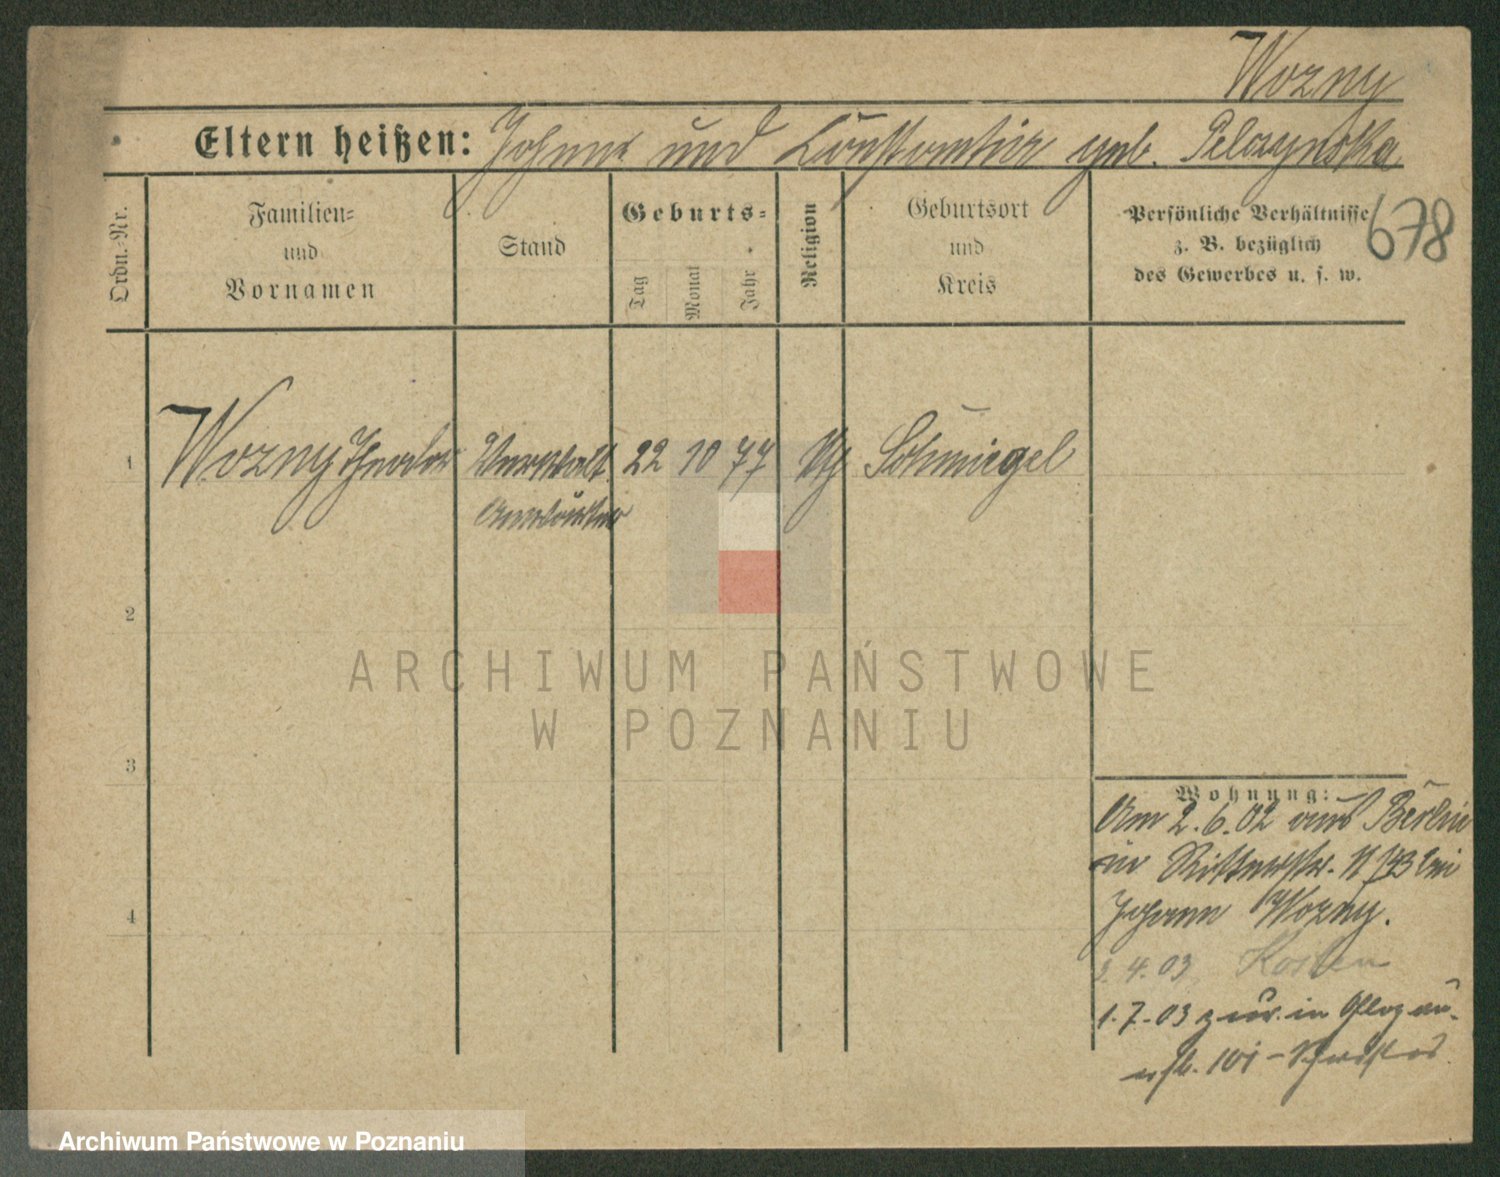 Wozny
Eltern heißen: Johann und Constantia geb. Pelczynska
678
Ordn.-Nr.
Familien-
und
Vornamen
Stand
Geburts-
Tag
Monat
Jahr
Religion
Geburtsort
und
Kreis
Persönliche Verhältnisse
z. B. bezüglich
des Gewerbes u. s. w.
1
Wozny Theodor
Verwalt.
Anwärter
22 10 77
Kth
Schmiegel
2
3
4
ARCHIWUM PAŃSTWOWE
W POZNANIU
Wohnung:
Am 2.6.02 aus Berlin
in Ritterstr. 11 bei
Johann Wozny.
4.03 Kosten
1.7.03 zur. in Glogau-
101
Archiwum Państwowe w Poznaniu